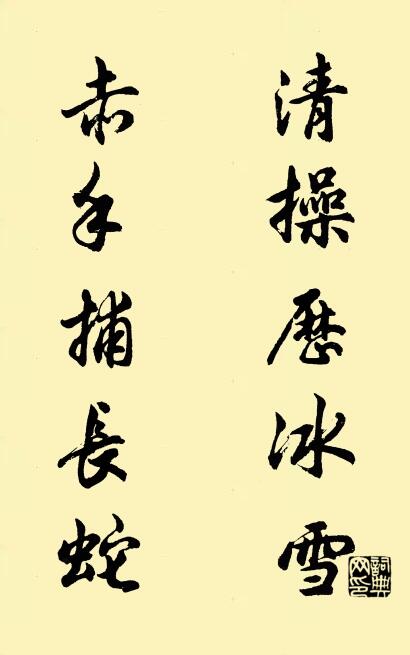 清操厯冰雪
赤手捕長蛇
詞典网印